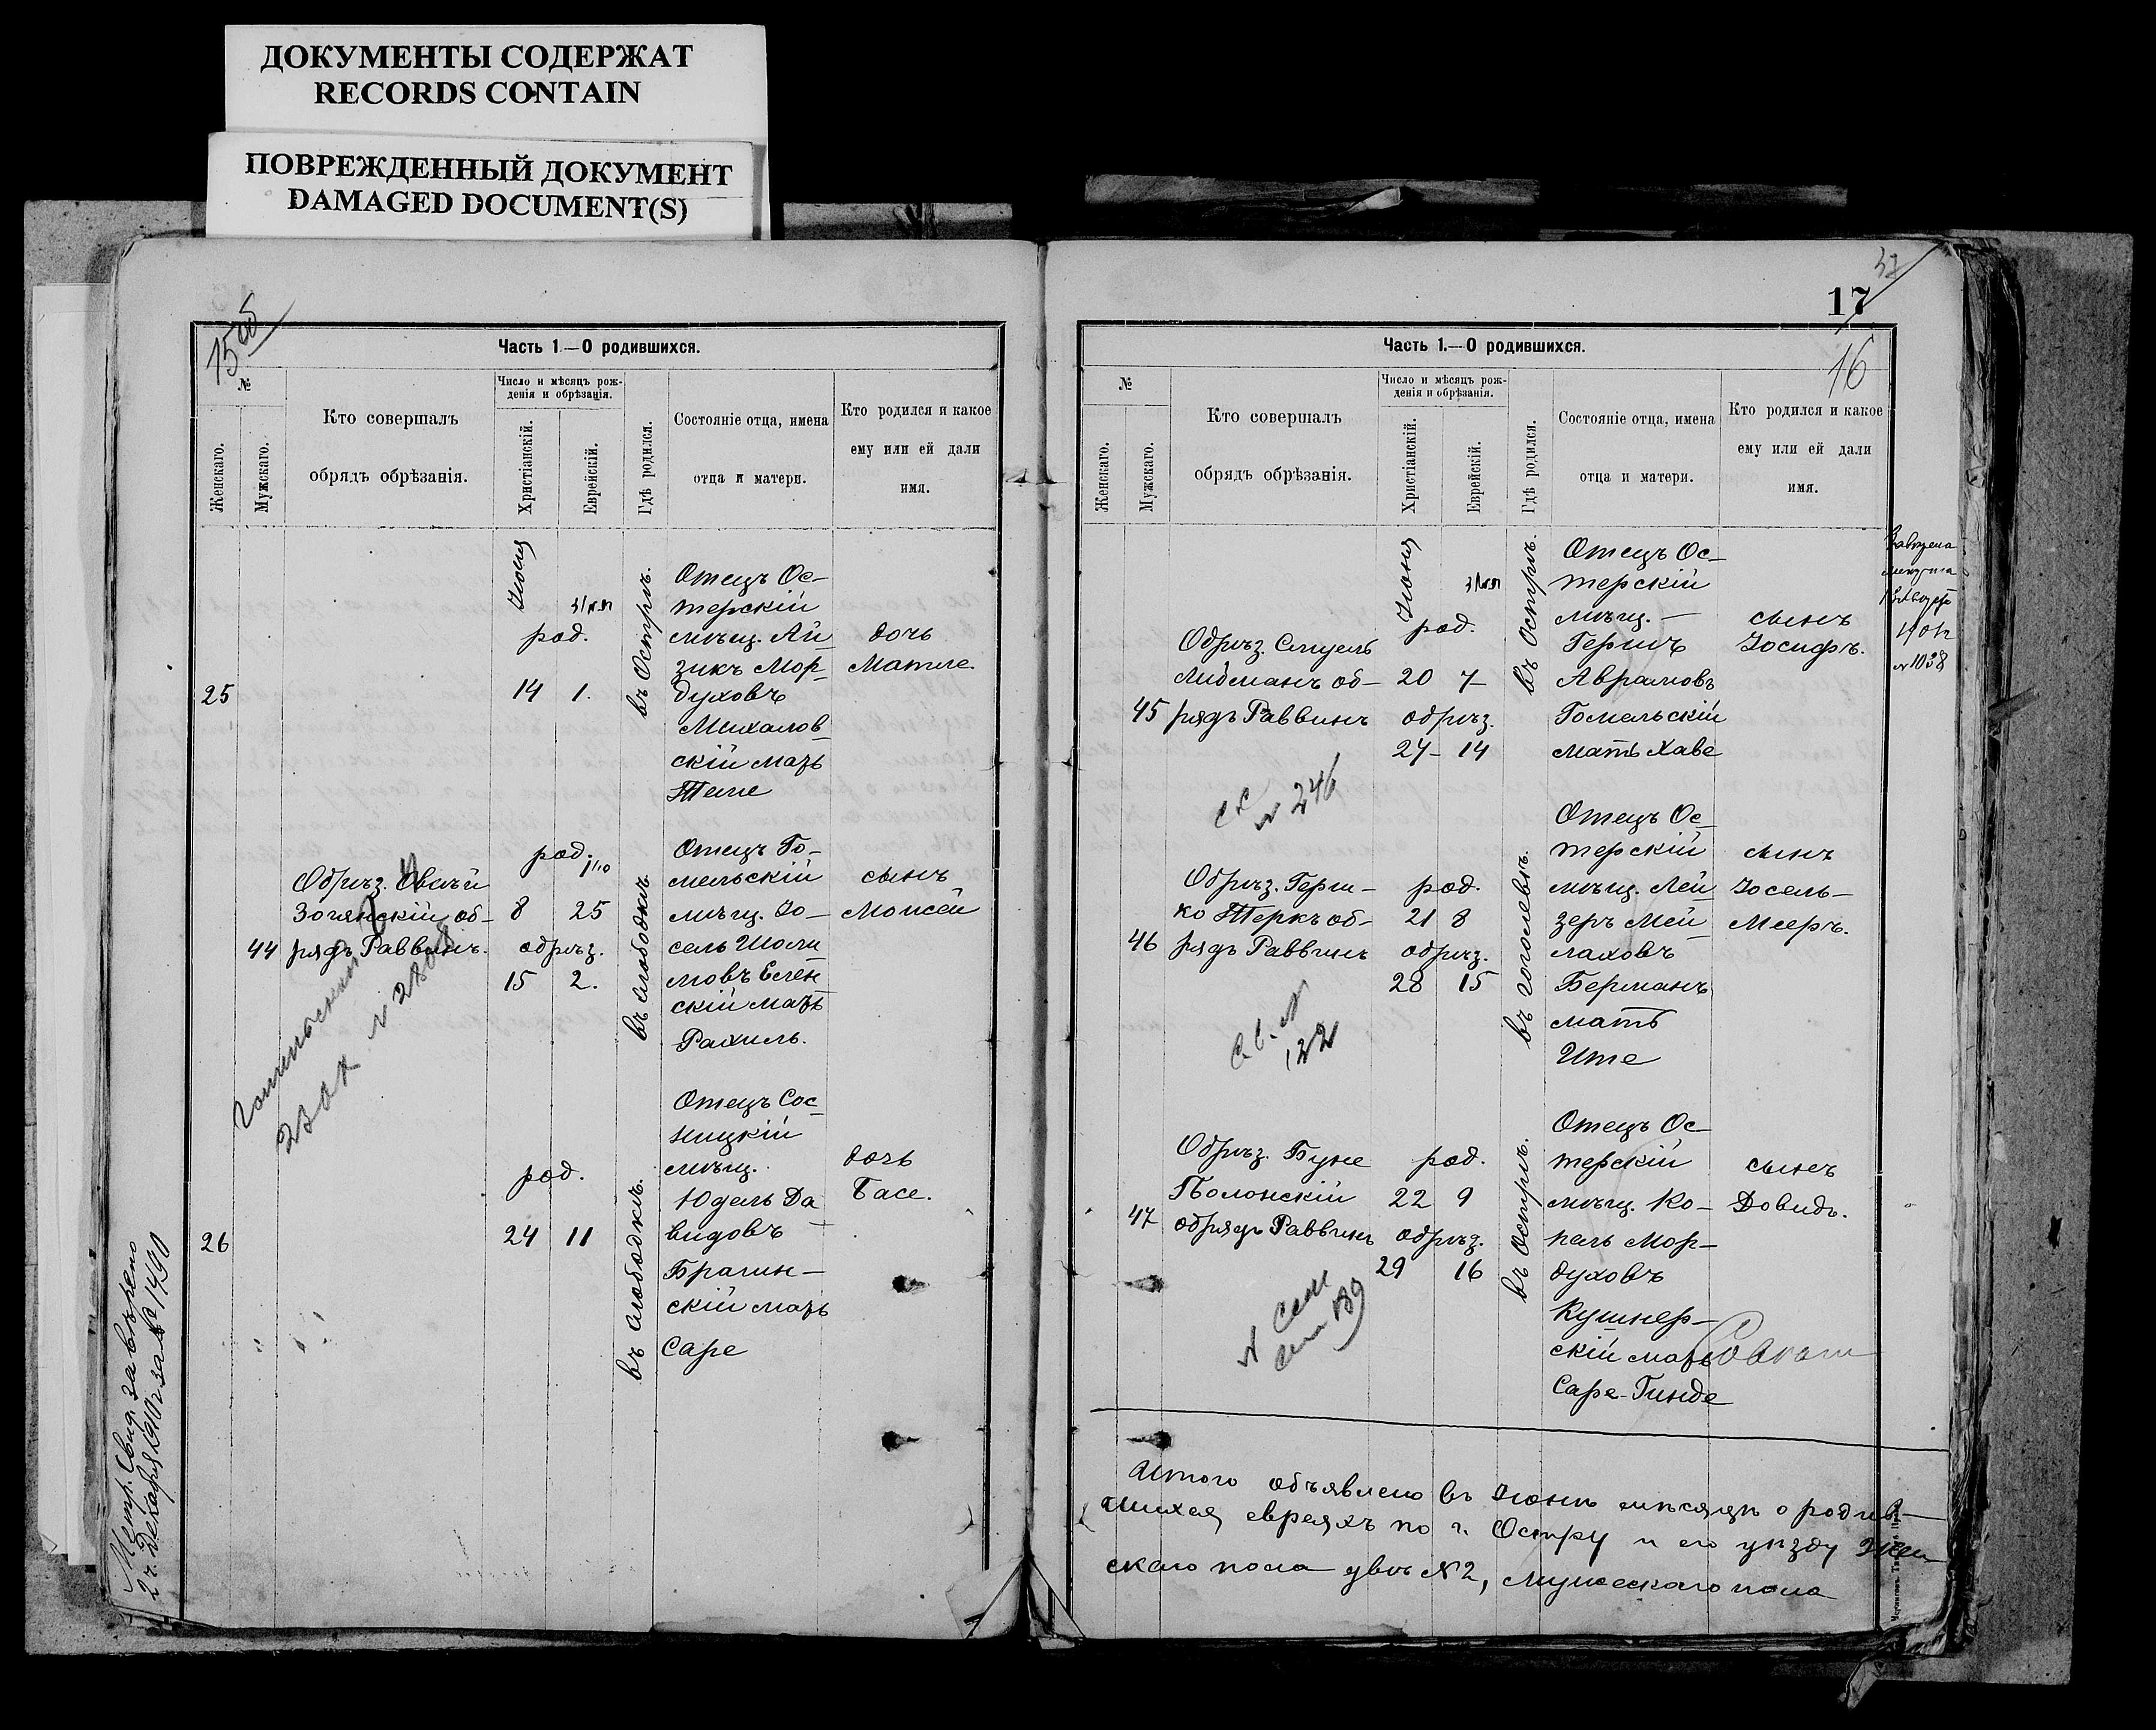 ДОКУМЕНТЫ СОДЕРЖАТ
RECORDS CONTAIN
ПОВРЕЖДЕННЫЙ ДОКУМЕНТ
DAMAGED DOCUMENT(S)
15 об
Часть 1.—О родившихся.
№
Женскаго.
Мужскаго.
Кто совершалъ
обрядъ обрѣзанія.
Число и мѣсяцъ рож-
денія и обрѣзанія.
Христіанскій.
Еврейскій.
Гдѣ родился.
Состояніе отца, имена
отца и матери.
Кто родился и какое
ему или ей дали
имя.
25
Іюня
род.
14 1.
въ Острѣ.
Отецъ Ос-
терскій
мѣщ. Ай
зикъ Мор-
духовъ
Михалов-
скій мать
Теме
дочь
Матле
44
Обрѣз. Овсѣй
об-
рядъ Раввинъ.
род.
8 25
обрѣз.
15 2.
въ слободкѣ
Отецъ Го-
мельскій
мѣщ. Іо-
сель Шоли
мовъ Елен
скій мать
Рахиль.
сынъ
Моисей
26
род.
24 11
въ слободкѣ.
Отецъ Сос-
ницкій
мѣщ.
Юдель Да
видовъ
Брагин-
скій мать
Саре
дочь
Басе.
Метр. Свид. завѣрено
2г. Декабря 1910 г за № 1490
17
16
Часть 1.—О родившихся.
№
Женскаго.
Мужскаго.
Кто совершалъ
обрядъ обрѣзанія.
Число и мѣсяцъ рож-
денія и обрѣзанія.
Христіанскій.
Еврейскій.
Гдѣ родился.
Состояніе отца, имена
отца и матери.
Кто родился и какое
ему или ей дали
имя.
45
Обрѣз. Смуель
Либманъ об-
рядъ Раввинъ
Іюня
род.
20 7
обрѣз.
27 - 14
въ Острѣ.
Отецъ Ос-
терскій
мѣщ. -
Гершъ
Аврамовъ
Гомельскій
мать Хаве
сынъ
Іосифъ.
№ 1038
№ 246
46
Обрѣз. Герш-
ко Теркъ об-
рядъ Раввинъ
род.
21 8
обрѣз.
28 15
въ гоголевѣ.
Отецъ Ос-
терскій
мѣщ. Лей
зеръ Мей
лаховъ
Берманъ
мать
Ите
сынъ
Іосель-
Мееръ.
122
47
Обрѣз. Буне
Полонскій
обрядъ Раввинъ
род.
22 9
обрѣз.
29 16
въ Острѣ.
Отецъ Ос-
терскій
мѣщ. Ко-
пель Мор-
духовъ
Кушнер-
скій мать
Саре-Гинде
сынъ
Довидъ.
139
Итого объявлено въ Іюнѣ мѣсяцѣ о родив-
шихся евреяхъ по г. Остру и его уѣзду Жен
скаго пола двѣ №2, мужескаго пола